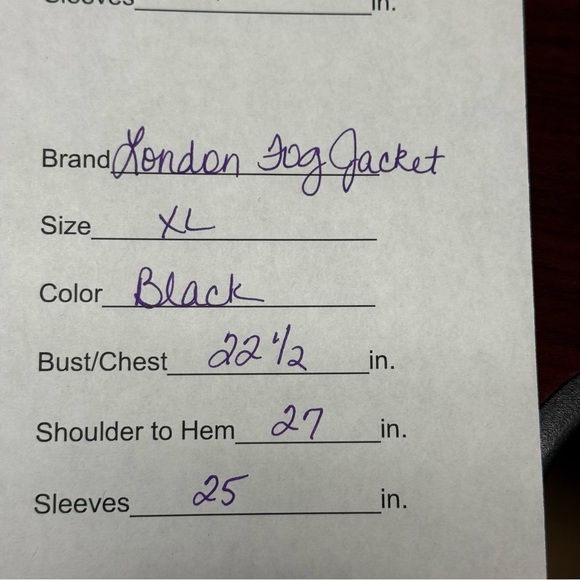 Sleeves in.
Brand London Fog Jacket
Size XL
Color Black
Bust/Chest 22 1/2 in.
Shoulder to Hem 27 in.
Sleeves 25 in.